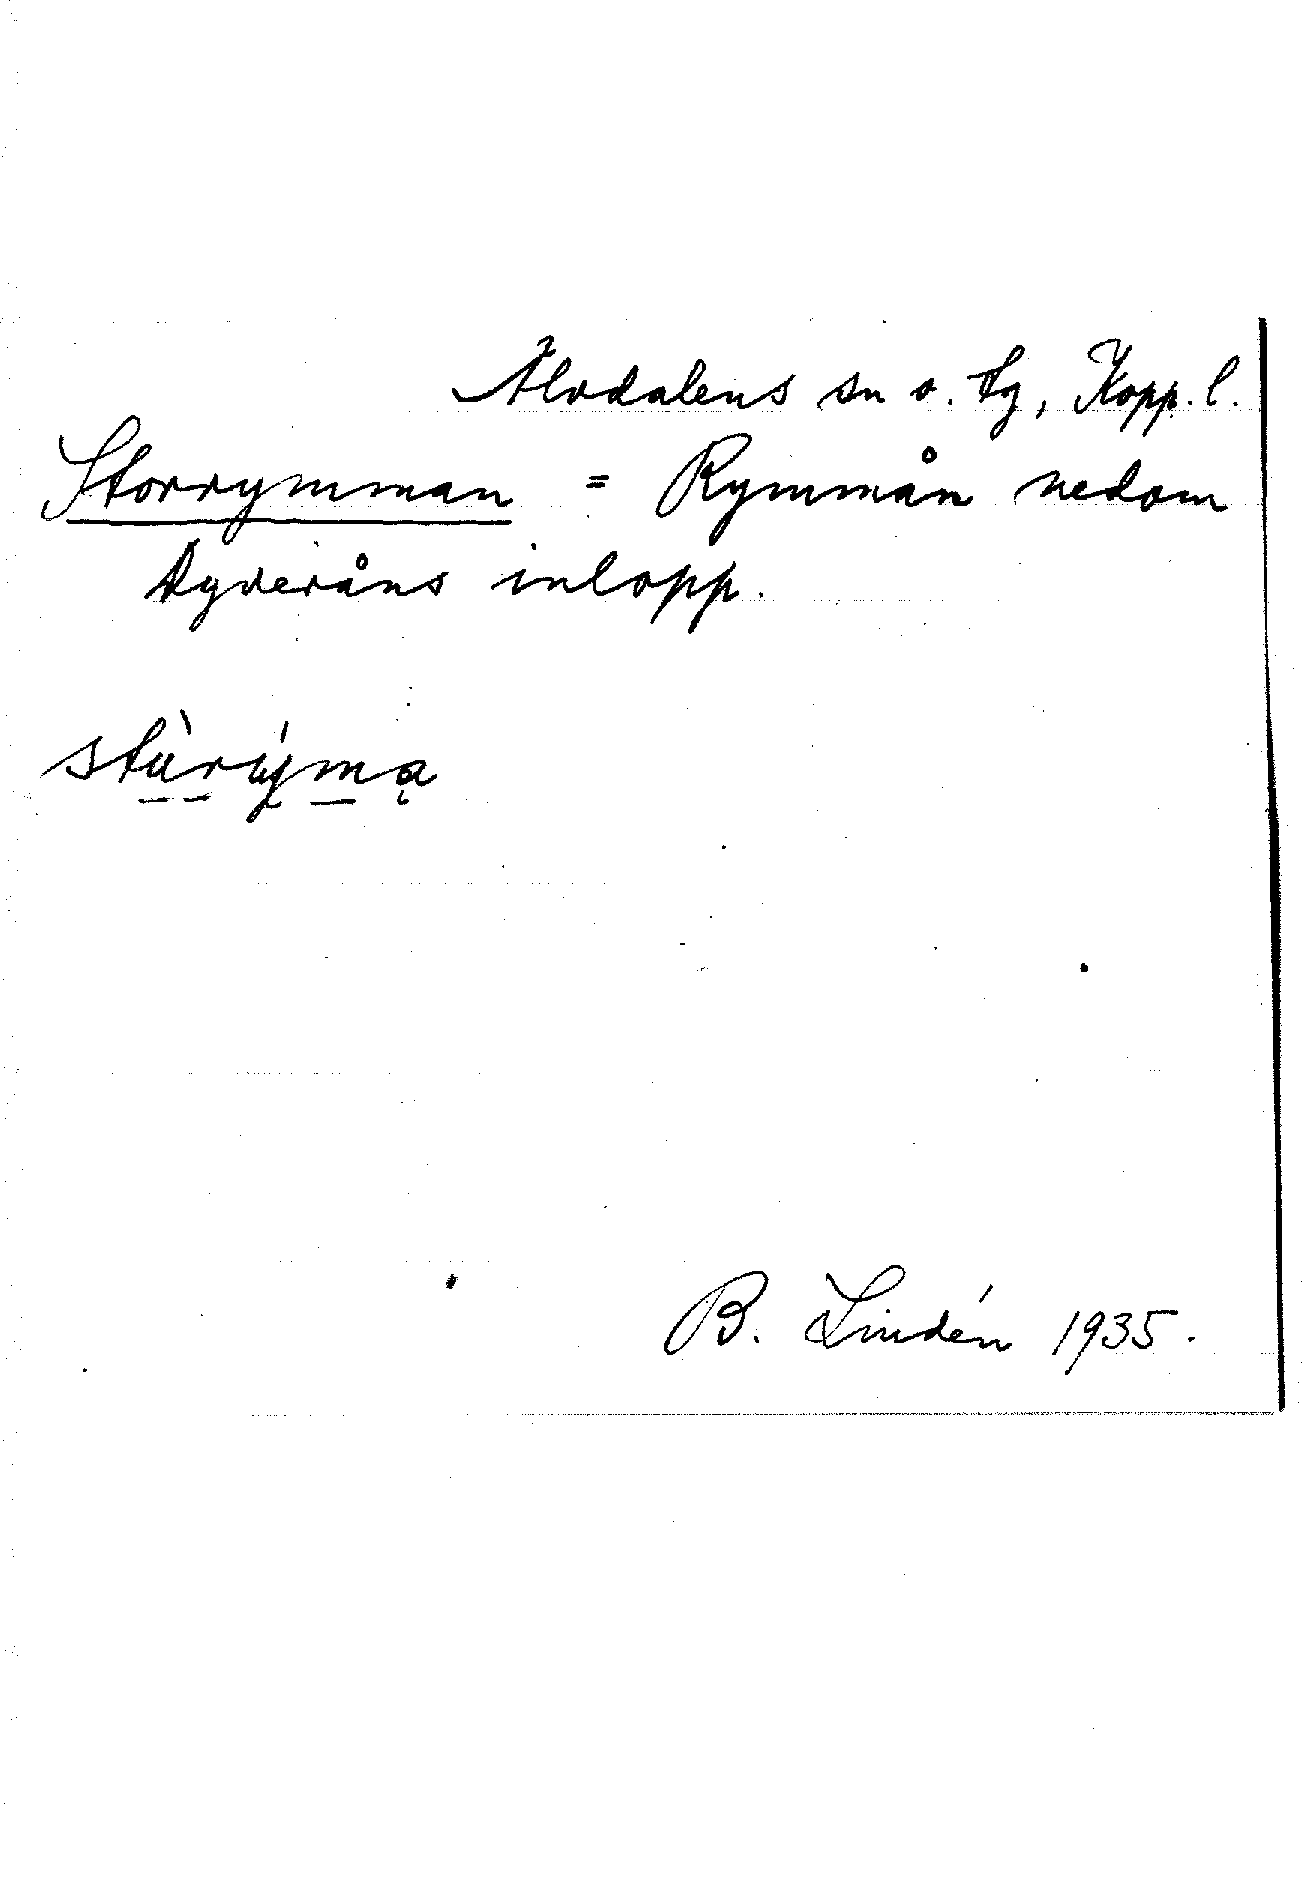 Älvdalens sn o. tg, Kopp. l.
Storrymman = Rymmån nedom
Tyveråns inlopp.
B. Lindén 1935.